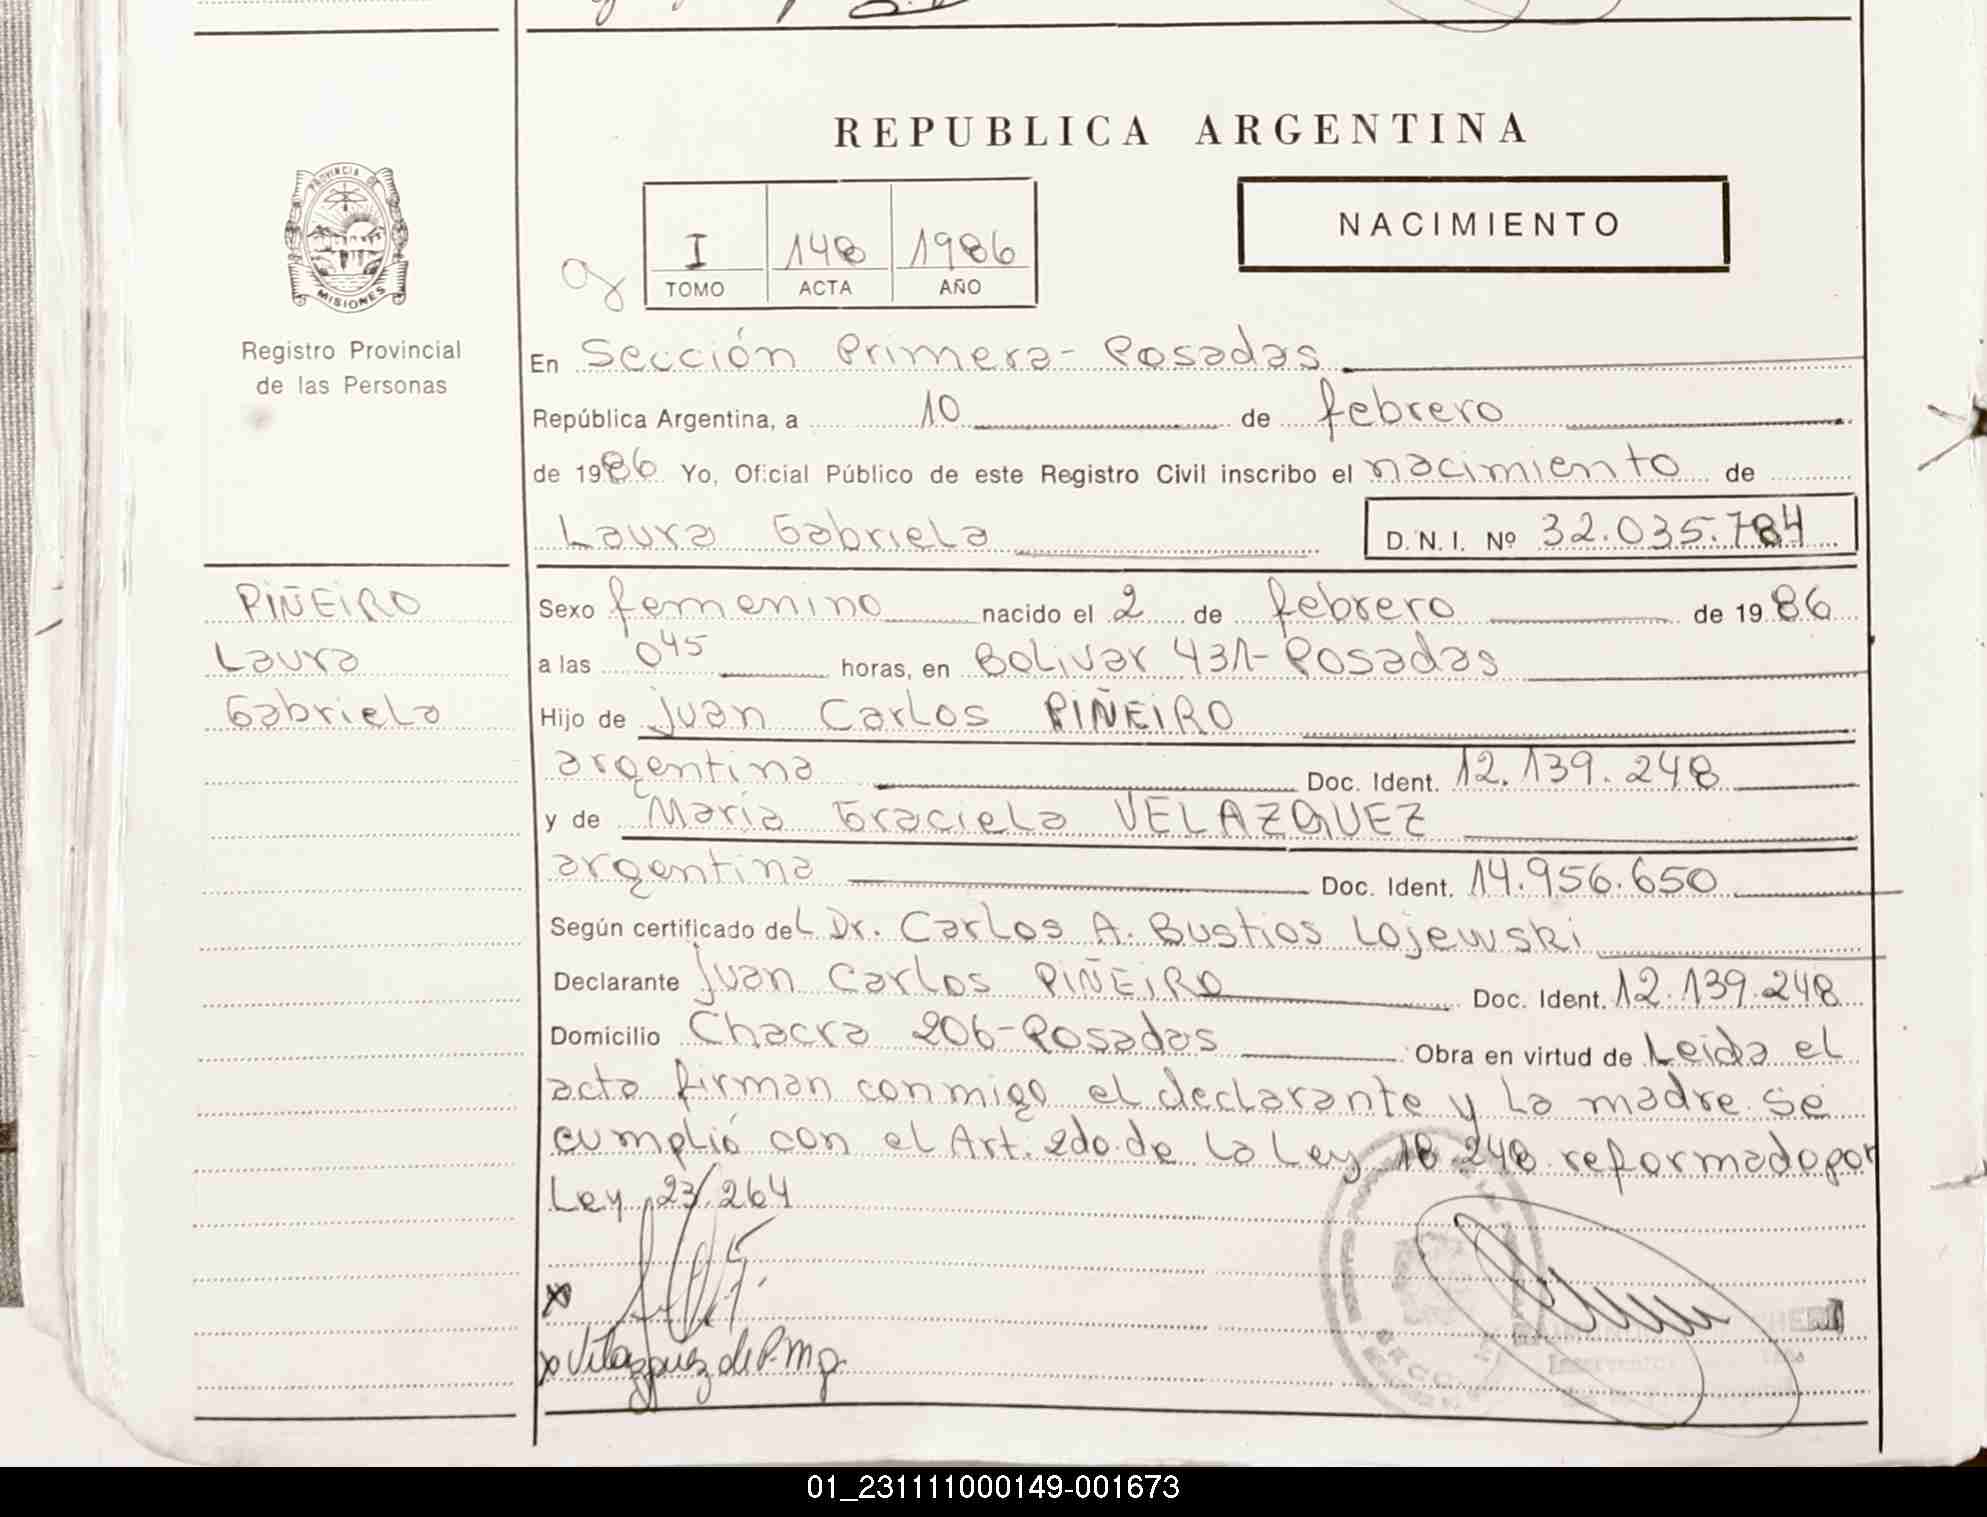 REPUBLICA ARGENTINA
PROVINCIA DE
MISIONES
Registro Provincial
de las Personas
I 148 1986
TOMO ACTA AÑO
NACIMIENTO
En Sección Primera - Posadas
República Argentina, a 10 de febrero
de 1986 Yo, Oficial Público de este Registro Civil inscribo el nacimiento de
Laura Gabriela D.N.I. Nº 32.035.784
PIÑEIRO
Laura
Gabriela
Sexo femenino nacido el 2 de febrero de 1986
a las 0 45 horas, en Bolivar 431 - Posadas
Hijo de Juan Carlos PIÑEIRO
argentina Doc. Ident. 12.139.248
y de María Graciela VELAZQUEZ
argentina Doc. Ident. 14.956.650
Según certificado del Dr. Carlos A. Bustios Lojewski
Declarante Juan Carlos PIÑEIRO Doc. Ident. 12.139.248
Domicilio Chacra 206 - Posadas Obra en virtud de Leida el
acta firman conmigo el declarante y la madre se
cumplió con el Art. 2do. de la Ley 18.248 reformado por
Ley 23.264
x
x Velazquez de P. M g.
01_231111000149-001673